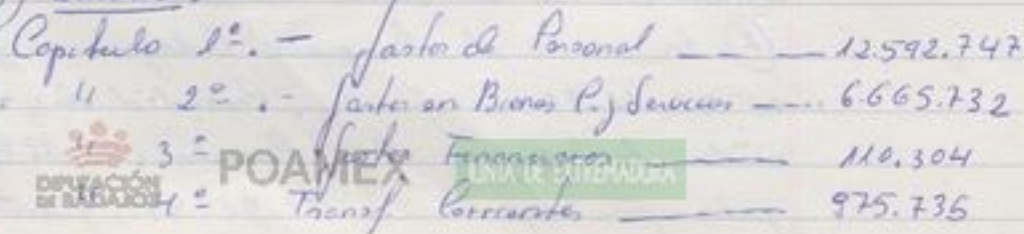 Capitulo 1º.- Gastos de Personal — — 12.592.747
" 2º.- Gastos en Bienes C. y Servicios — 6.665.732
" 3º Gastos Financieros — 110.304
4º Transf Corrientes — 975.736
DIPUTACIÓN DE BADAJOZ
POAMEX
JUNTA DE EXTREMADURA